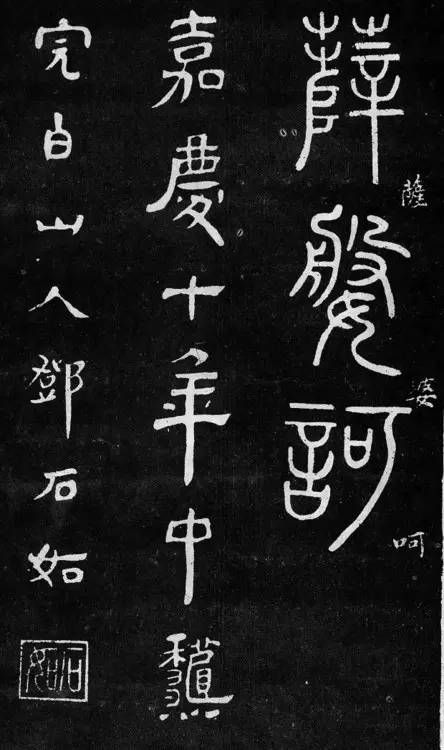 薛媻訶
薩婆呵
嘉慶十年中龝
完白山人鄧石如
石如